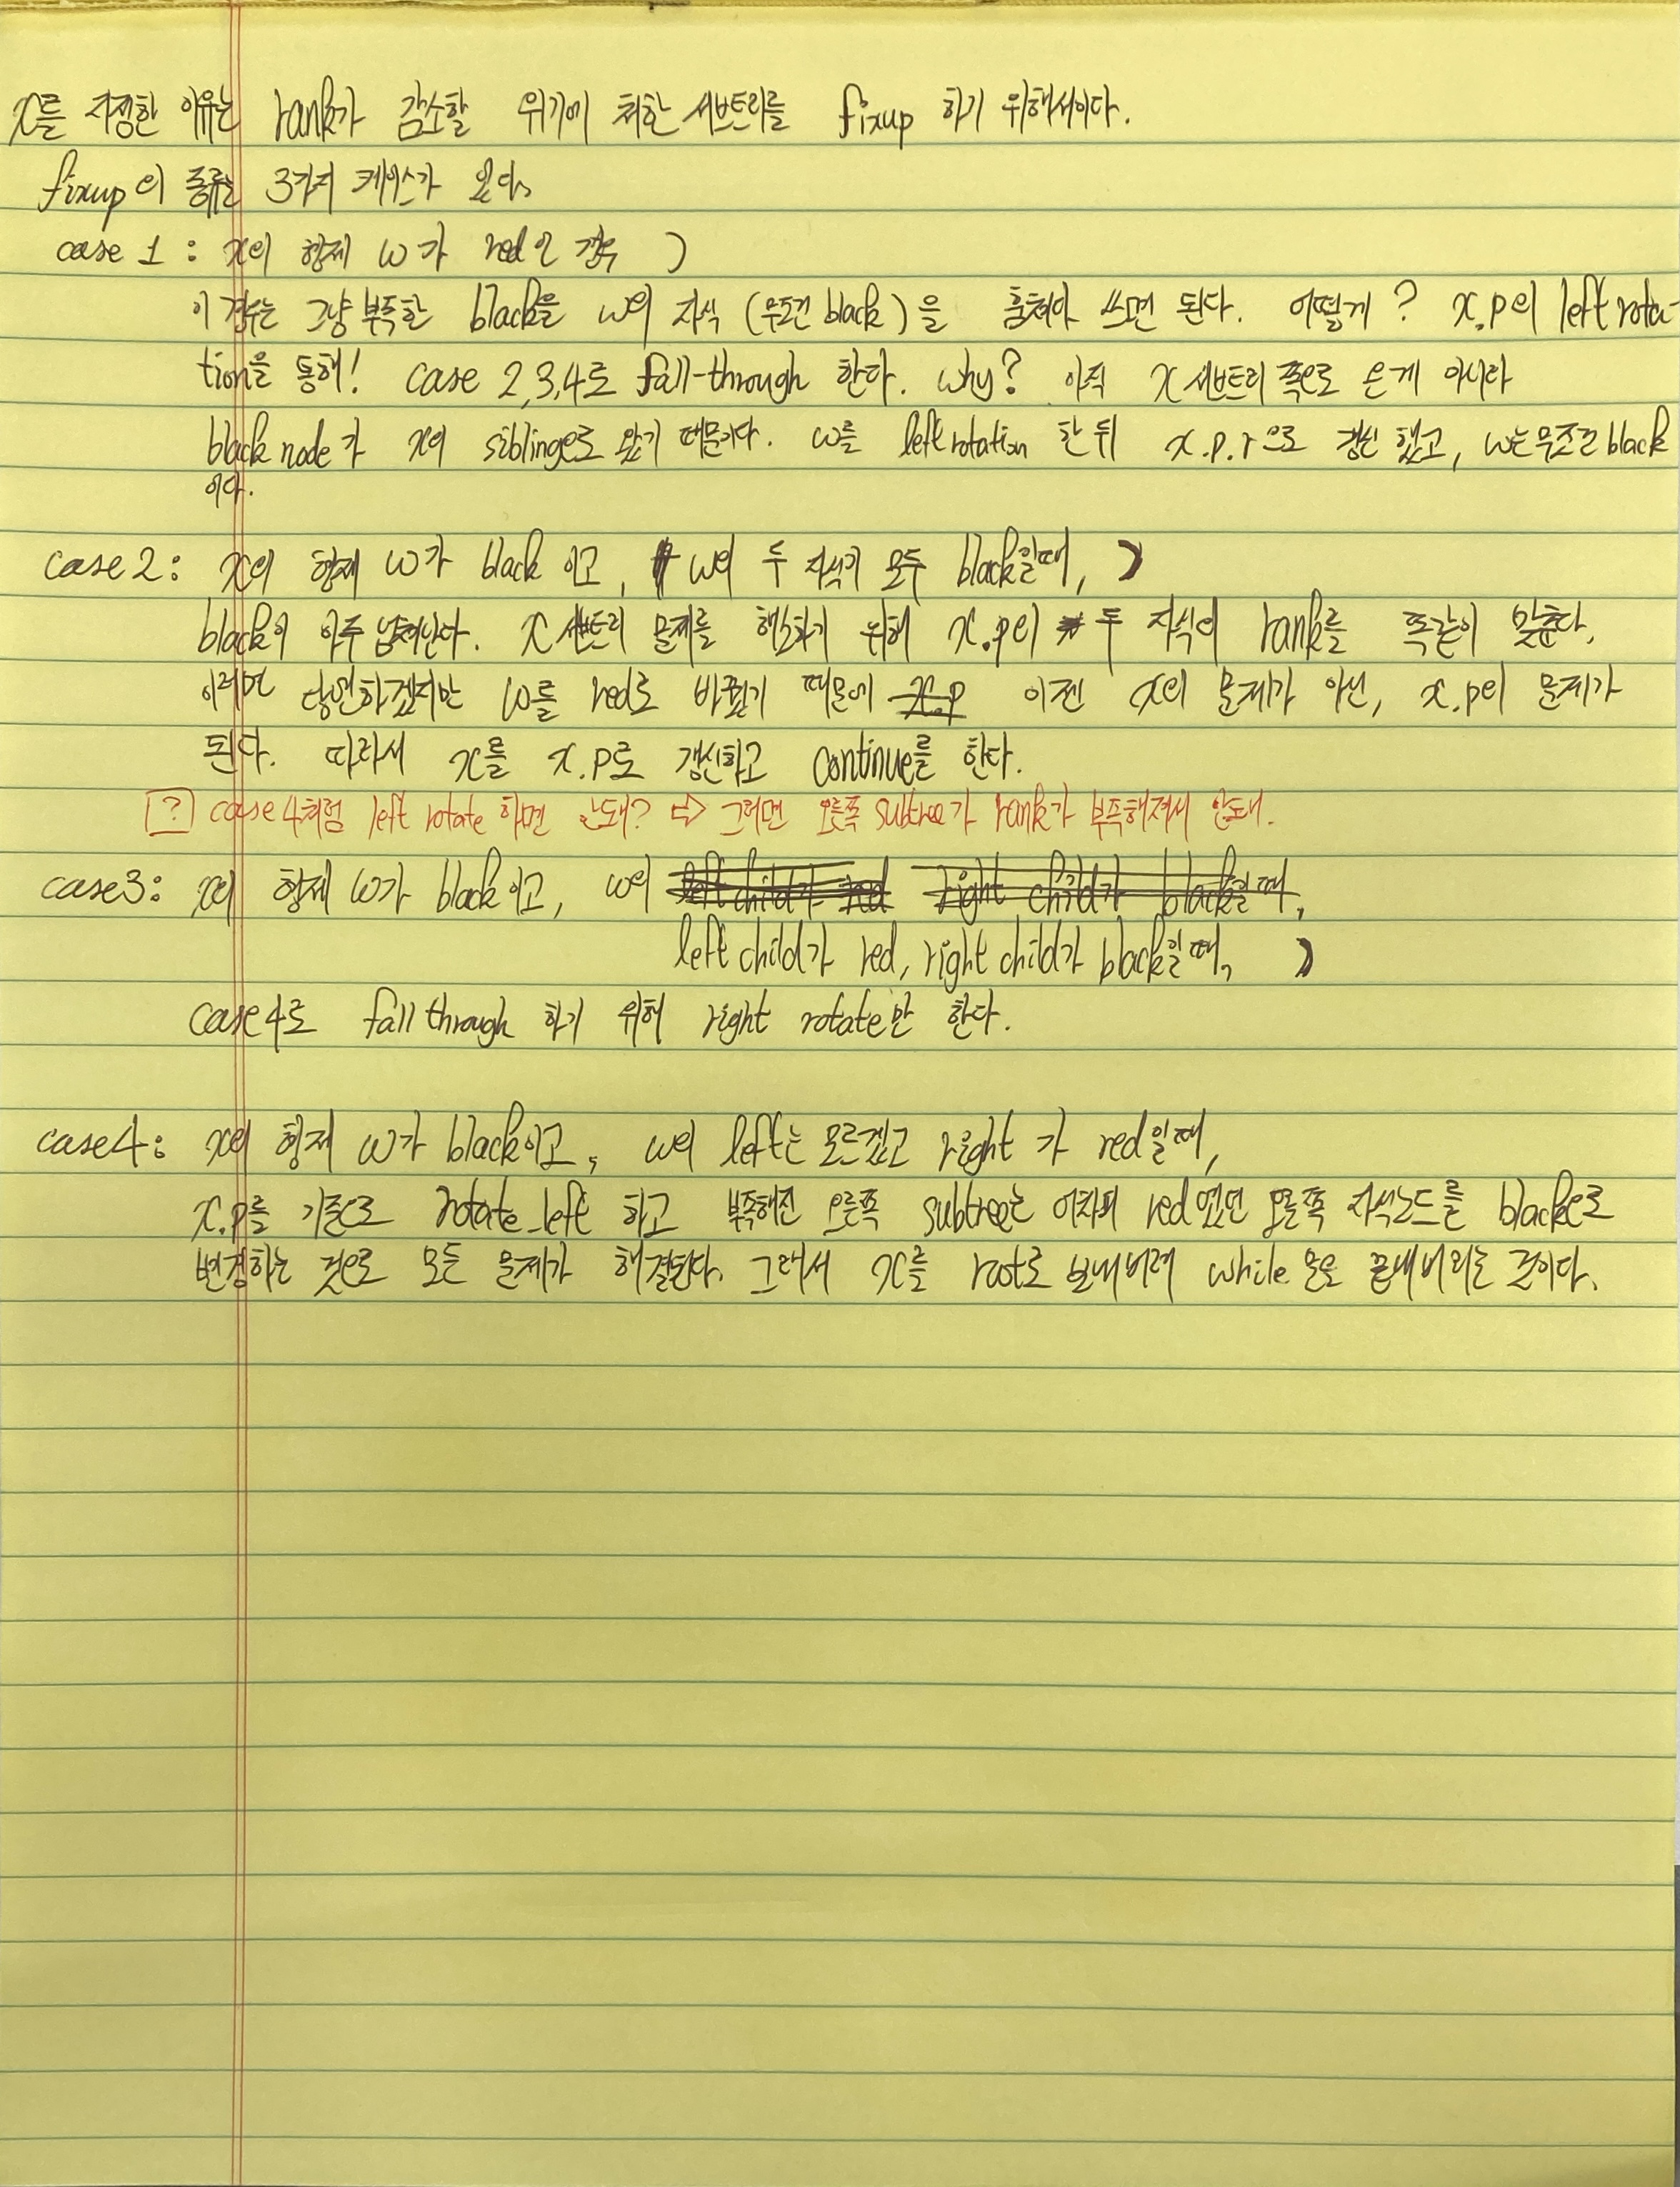 x를 지정한 이유는 rank가 감소할 위기에 처한 서브트리를 fixup 하기 위해서이다.
fixup의 종류는 3가지 케이스가 있다.
case 1 : x의 형제 w가 red인 경우 )
이 경우는 그냥 부족한 black을 w의 자식 (무조건 black)을 훔쳐와 쓰면 된다. 어떻게? x.p의 left rota-
tion을 통해! case 2,3,4로 fall-through 한다. why? 아직 x 서브트리 쪽으로 온게 아니라
black node가 x의 sibling으로 왔기 때문이다. w를 left rotation 한 뒤 x.p.r으로 갱신 했고, w는 무조건 black
이다.
case2: x의 형제 w가 black 이고, w의 두 자식이 모두 black일때, )
black이 아주 넘쳐난다. x 서브트리 문제를 해소하기 위해 x.p의 두 자식의 rank를 똑같이 맞춘다.
이러면 당연하겠지만 w를 red로 바꿨기 때문에 x.p 이젠 x의 문제가 아닌, x.p의 문제가
된다. 따라서 x를 x.p로 갱신하고 continue를 한다.
[?] case4처럼 left rotate 하면 안돼? ⇨ 그러면 오른쪽 subtree가 rank가 부족해져서 안돼.
case3: x의 형제 w가 black이고, w의 left child가 red right child가 black일때,
left child가 red, right child가 black일때, )
case4로 fall through 하기 위해 right rotate만 한다.
case4: x의 형제 w가 black이고, w의 left는 모르겠고 right 가 red일때,
x.p를 기준으로 rotate_left 하고 부족해진 오른쪽 subtree는 어차피 red였던 오른쪽 자식노드를 black으로
변경하는 것으로 모든 문제가 해결된다. 그래서 x를 root로 보내버려 while 문을 끝내버리는 것이다.